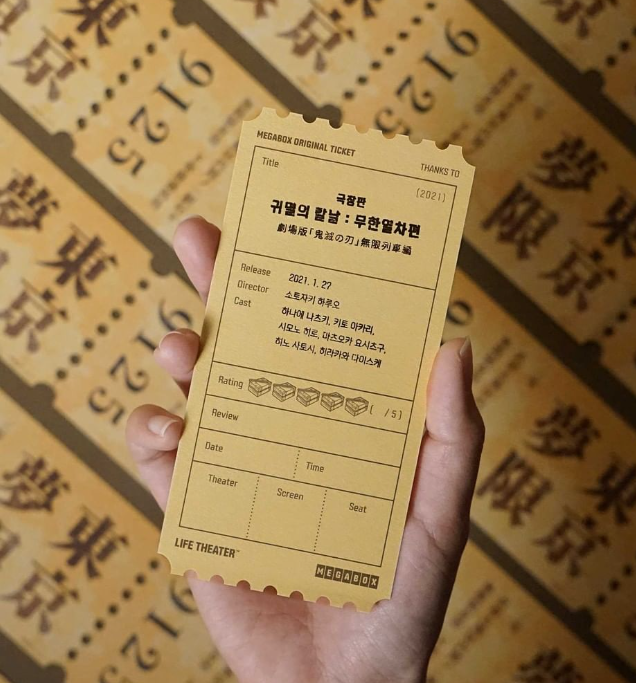 MEGABOX ORIGINAL TICKET
THANKS TO
Title
(2021)
극장판
귀멸의 칼날 : 무한열차편
劇場版「鬼滅の刃」無限列車編
Release 2021. 1. 27
Director 소토자키 하루오
Cast 하나에 나츠키, 키토 아카리,
시모노 히로, 마츠오카 요시츠구,
히노 사토시, 히라카와 다이스케
Rating ( / 5)
Review
Date
Time
Theater
Screen
Seat
LIFE THEATER™
MEGABOX
東京
夢限
9125